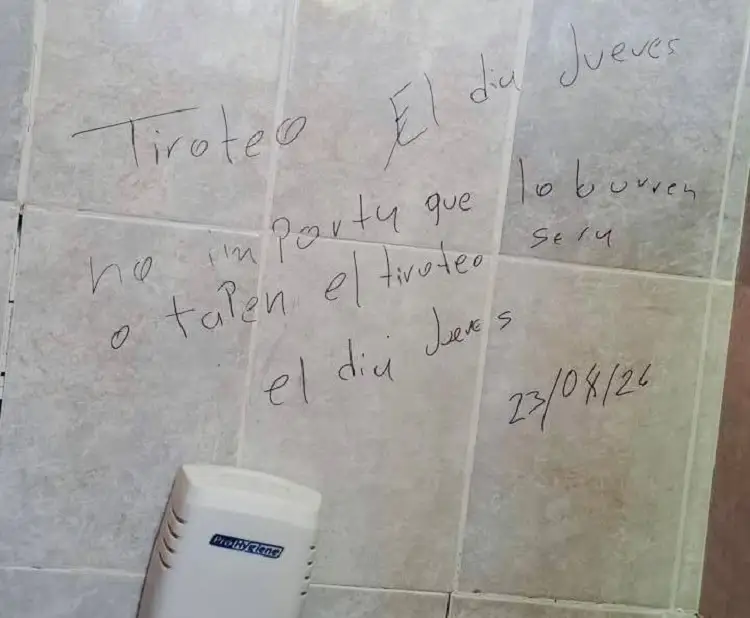 Tiroteo El dia Jueves
no importa que lo burren
o tapen el tiroteo sera
el dia Jueves
23/04/26
ProHygiene